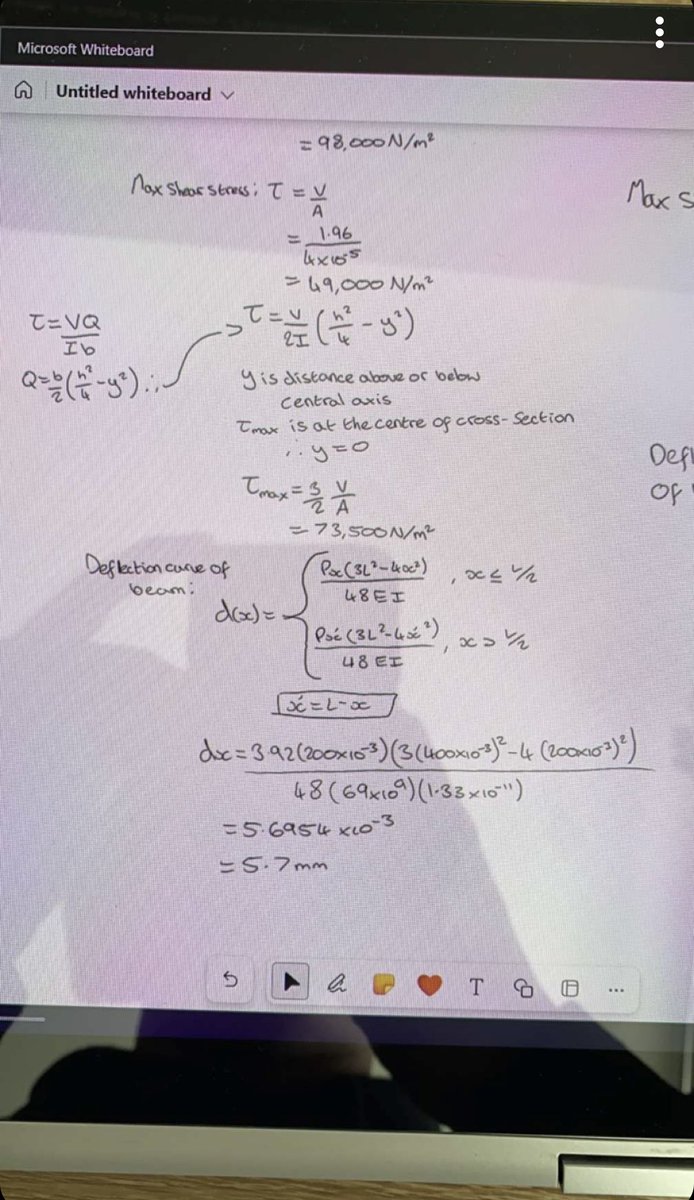 Microsoft Whiteboard
Untitled whiteboard
= 98,000 N/m²
Max shear stress: τ = V/A
Max s
= 1.96/4x10⁻⁵
= 49,000 N/m²
τ = VQ/Ib
τ = V/2I (h²/4 - y²)
Q = b/2 (h²/4 - y²) ∴
y is distance above or below
central axis
τmax is at the centre of cross-section
∴ y = 0
Defl
of
τmax = 3/2 V/A
= 73,500 N/m²
Deflection curve of
beam:
d(x) = { Px(3L²-4x²)/48EI , x ≤ L/2
Px́(3L²-4x́²)/48EI , x > L/2
x́ = L-x
dx = 3.92(200x10⁻³)(3(400x10⁻³)²-4(200x10⁻³)²)/48(69x10⁹)(1.33x10⁻¹¹)
= 5.6954 x10⁻³
= 5.7mm
T